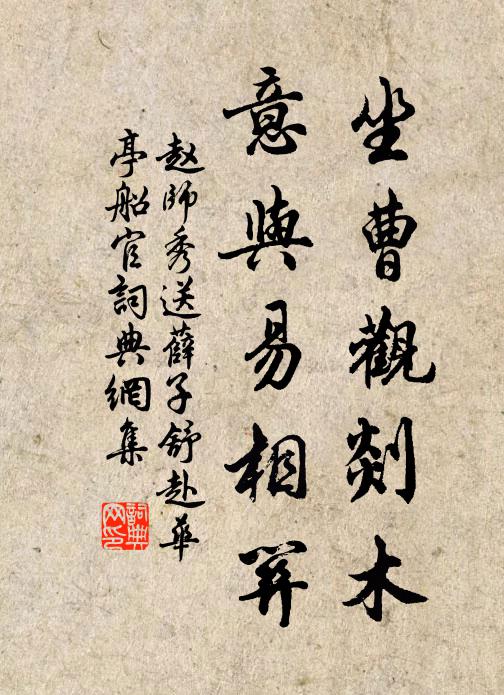 坐曹觀剡木
意與易相關
趙師秀送薛子舒赴華
亭船官詞典網集
詞典
网印